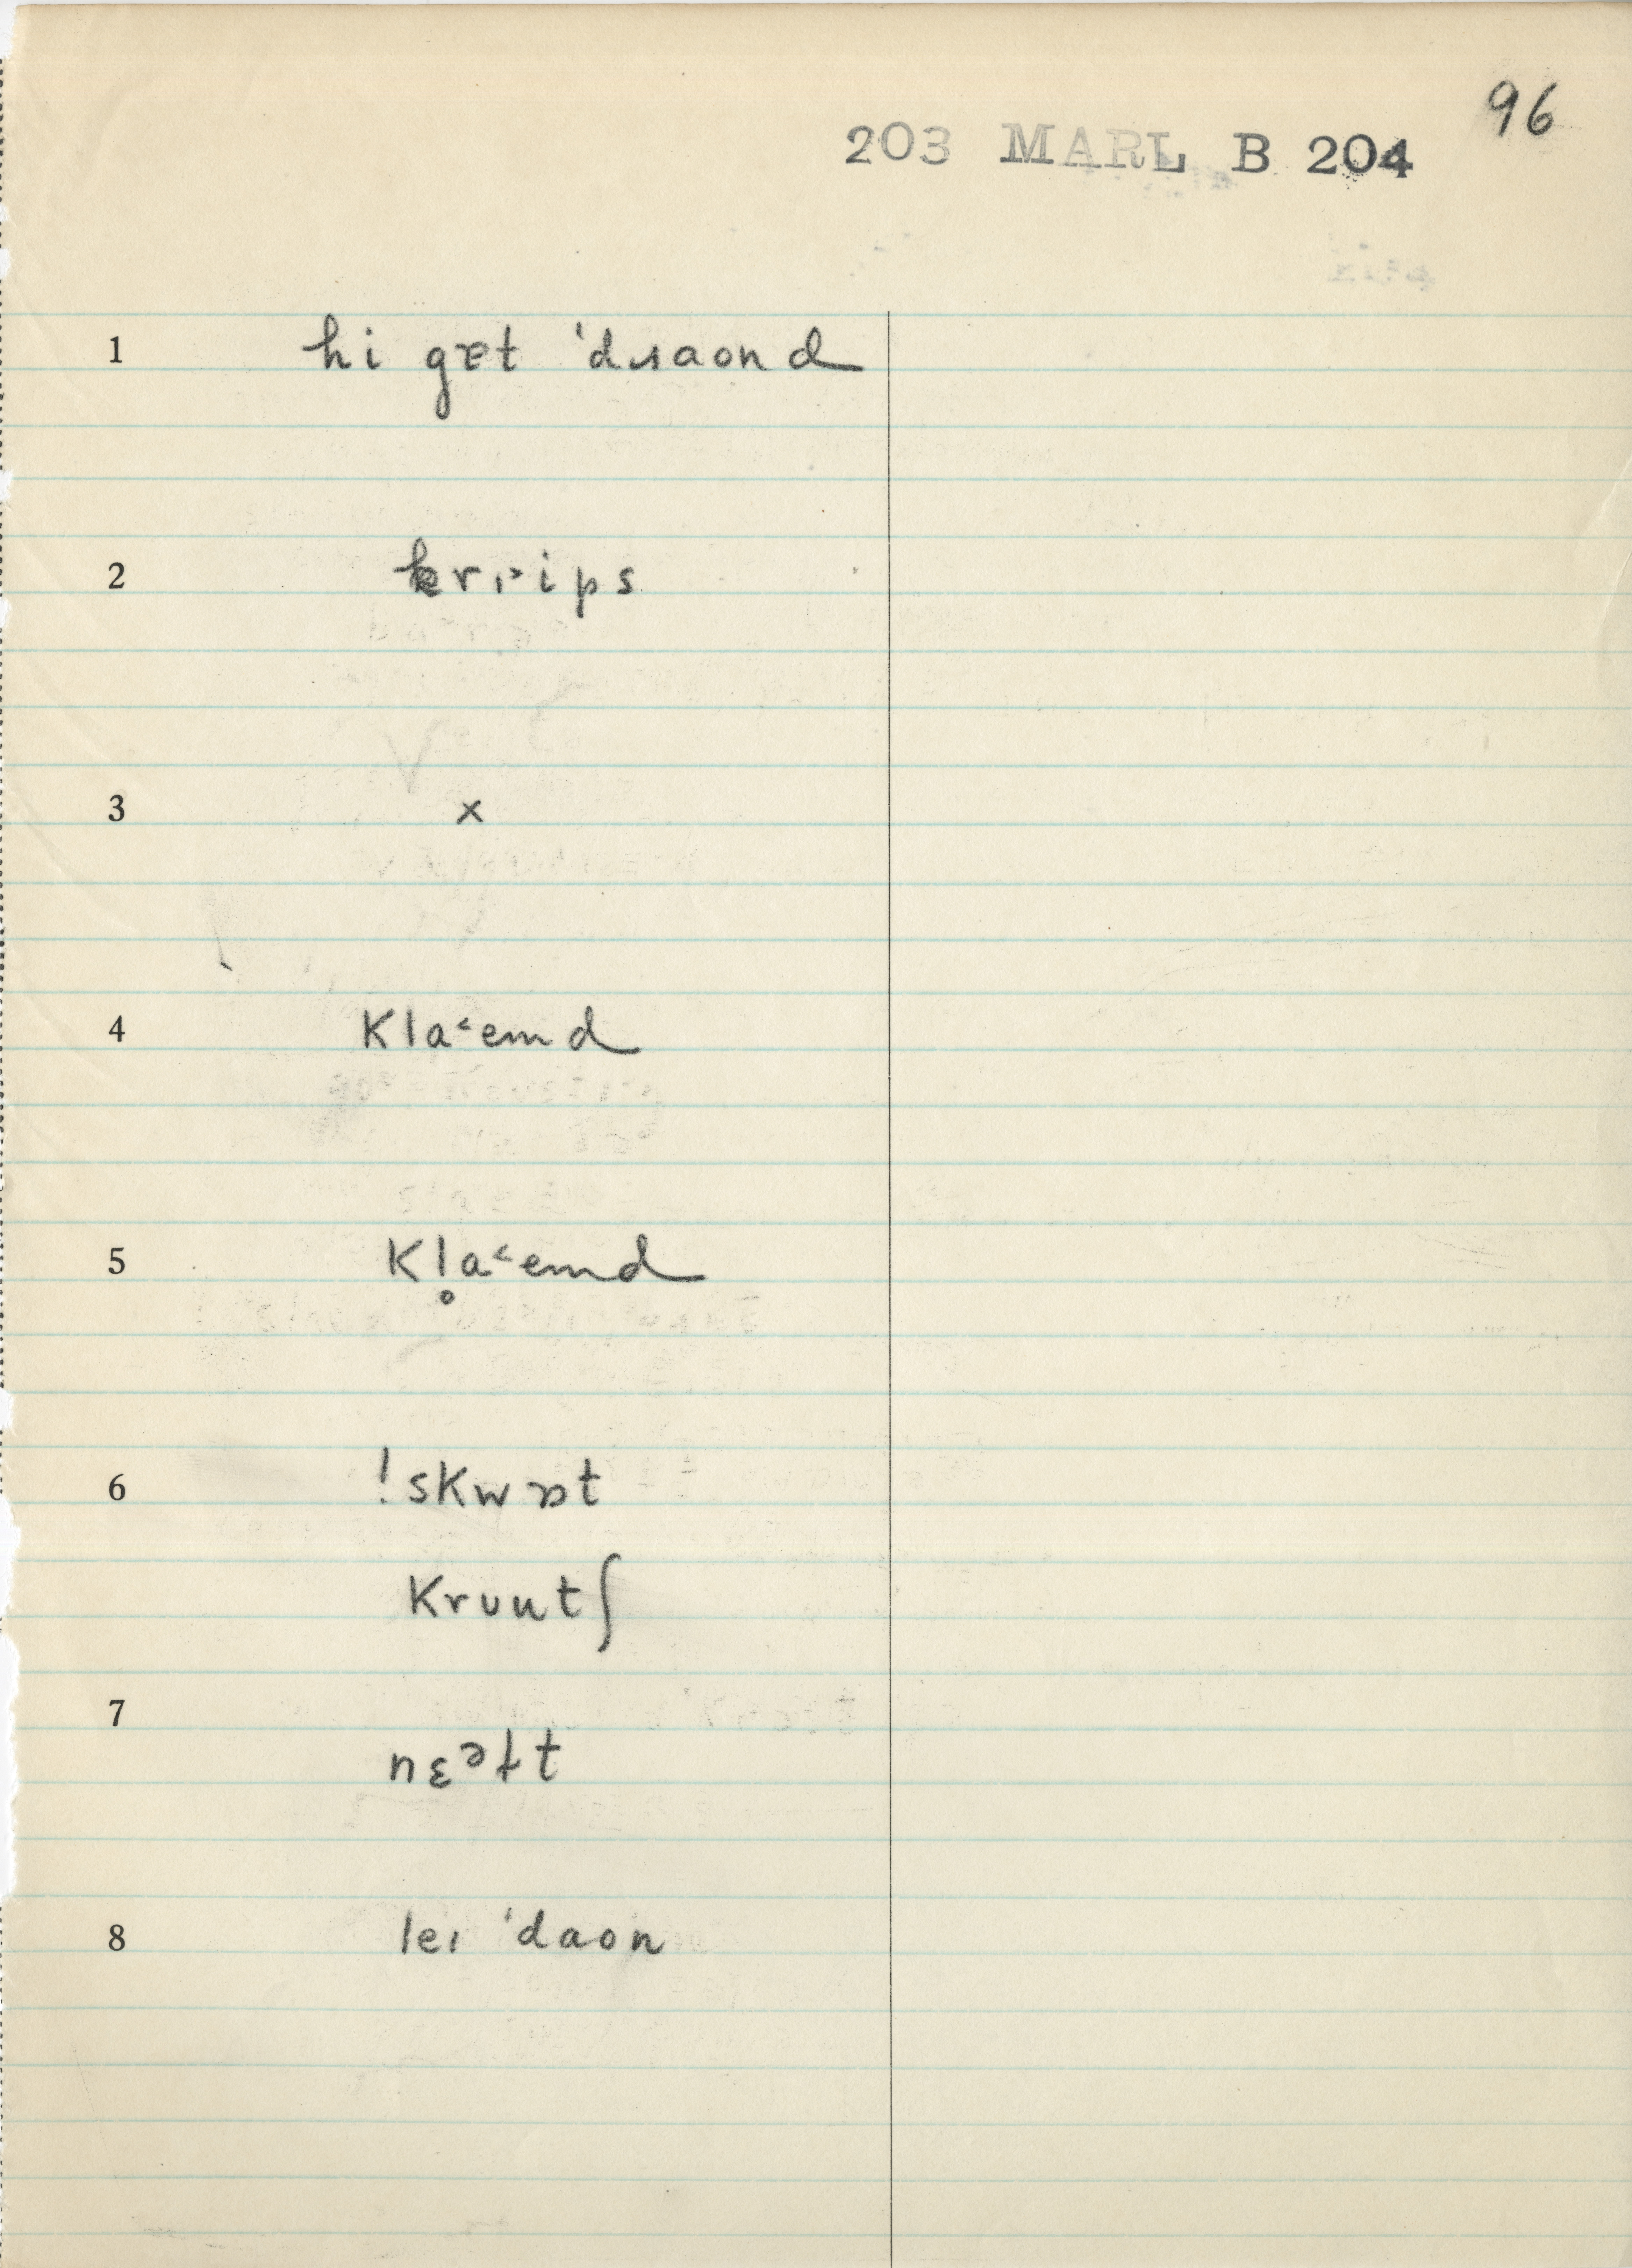 96
203 MARL B 204
1 hi gɐt ˈdɹaond
2 krɪ˃ips
3 x
4 kla˂emd
5 kl̥a˂emd
6 ! skwɒt
krʊutʃ
7 nɛᵊɫt
8 leɪ ˈdaon